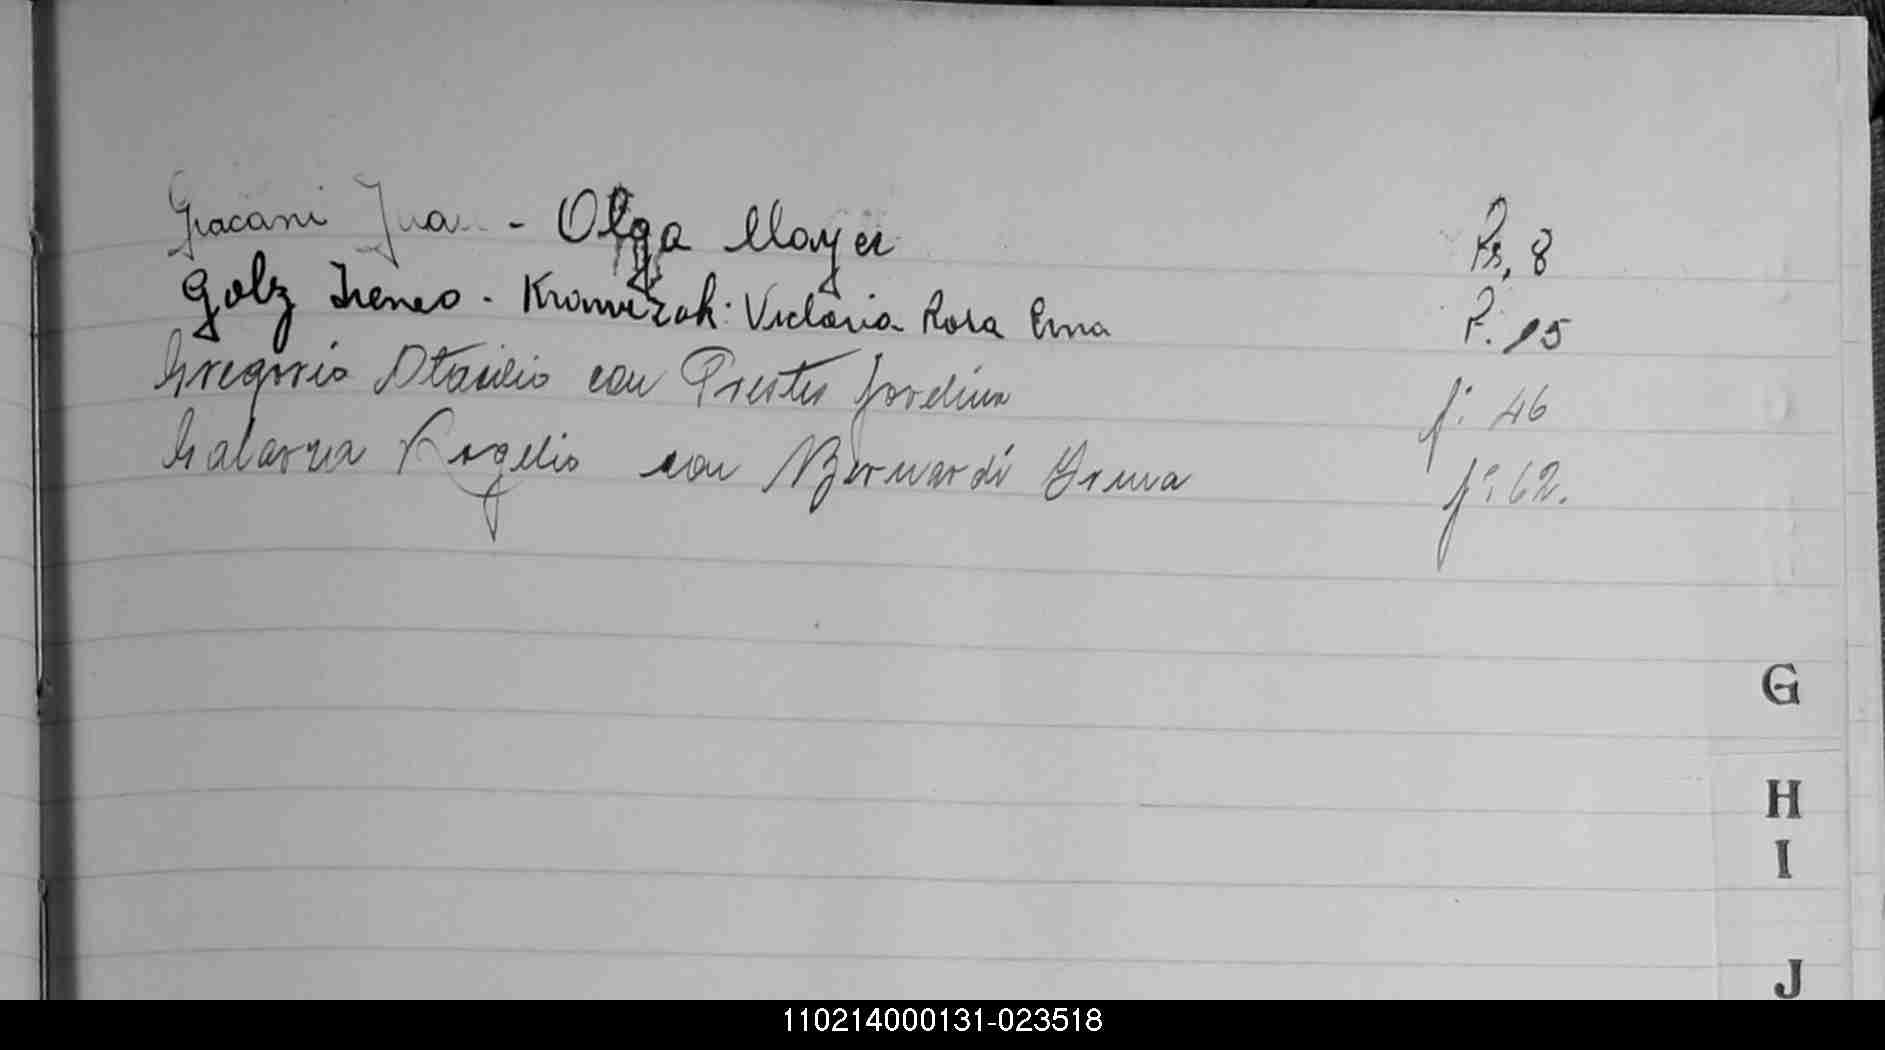 Giacani Jua - Olga Mayer Ps, 8
Golz Ireneo - Krawczak: Victoria Rosa Ema P. 15
Gregorio Otacilio con Prestes Jordina f: 46
Galarza Rogelio con Bernardi Irma f: 62.
G
H
I
J
110214000131-023518